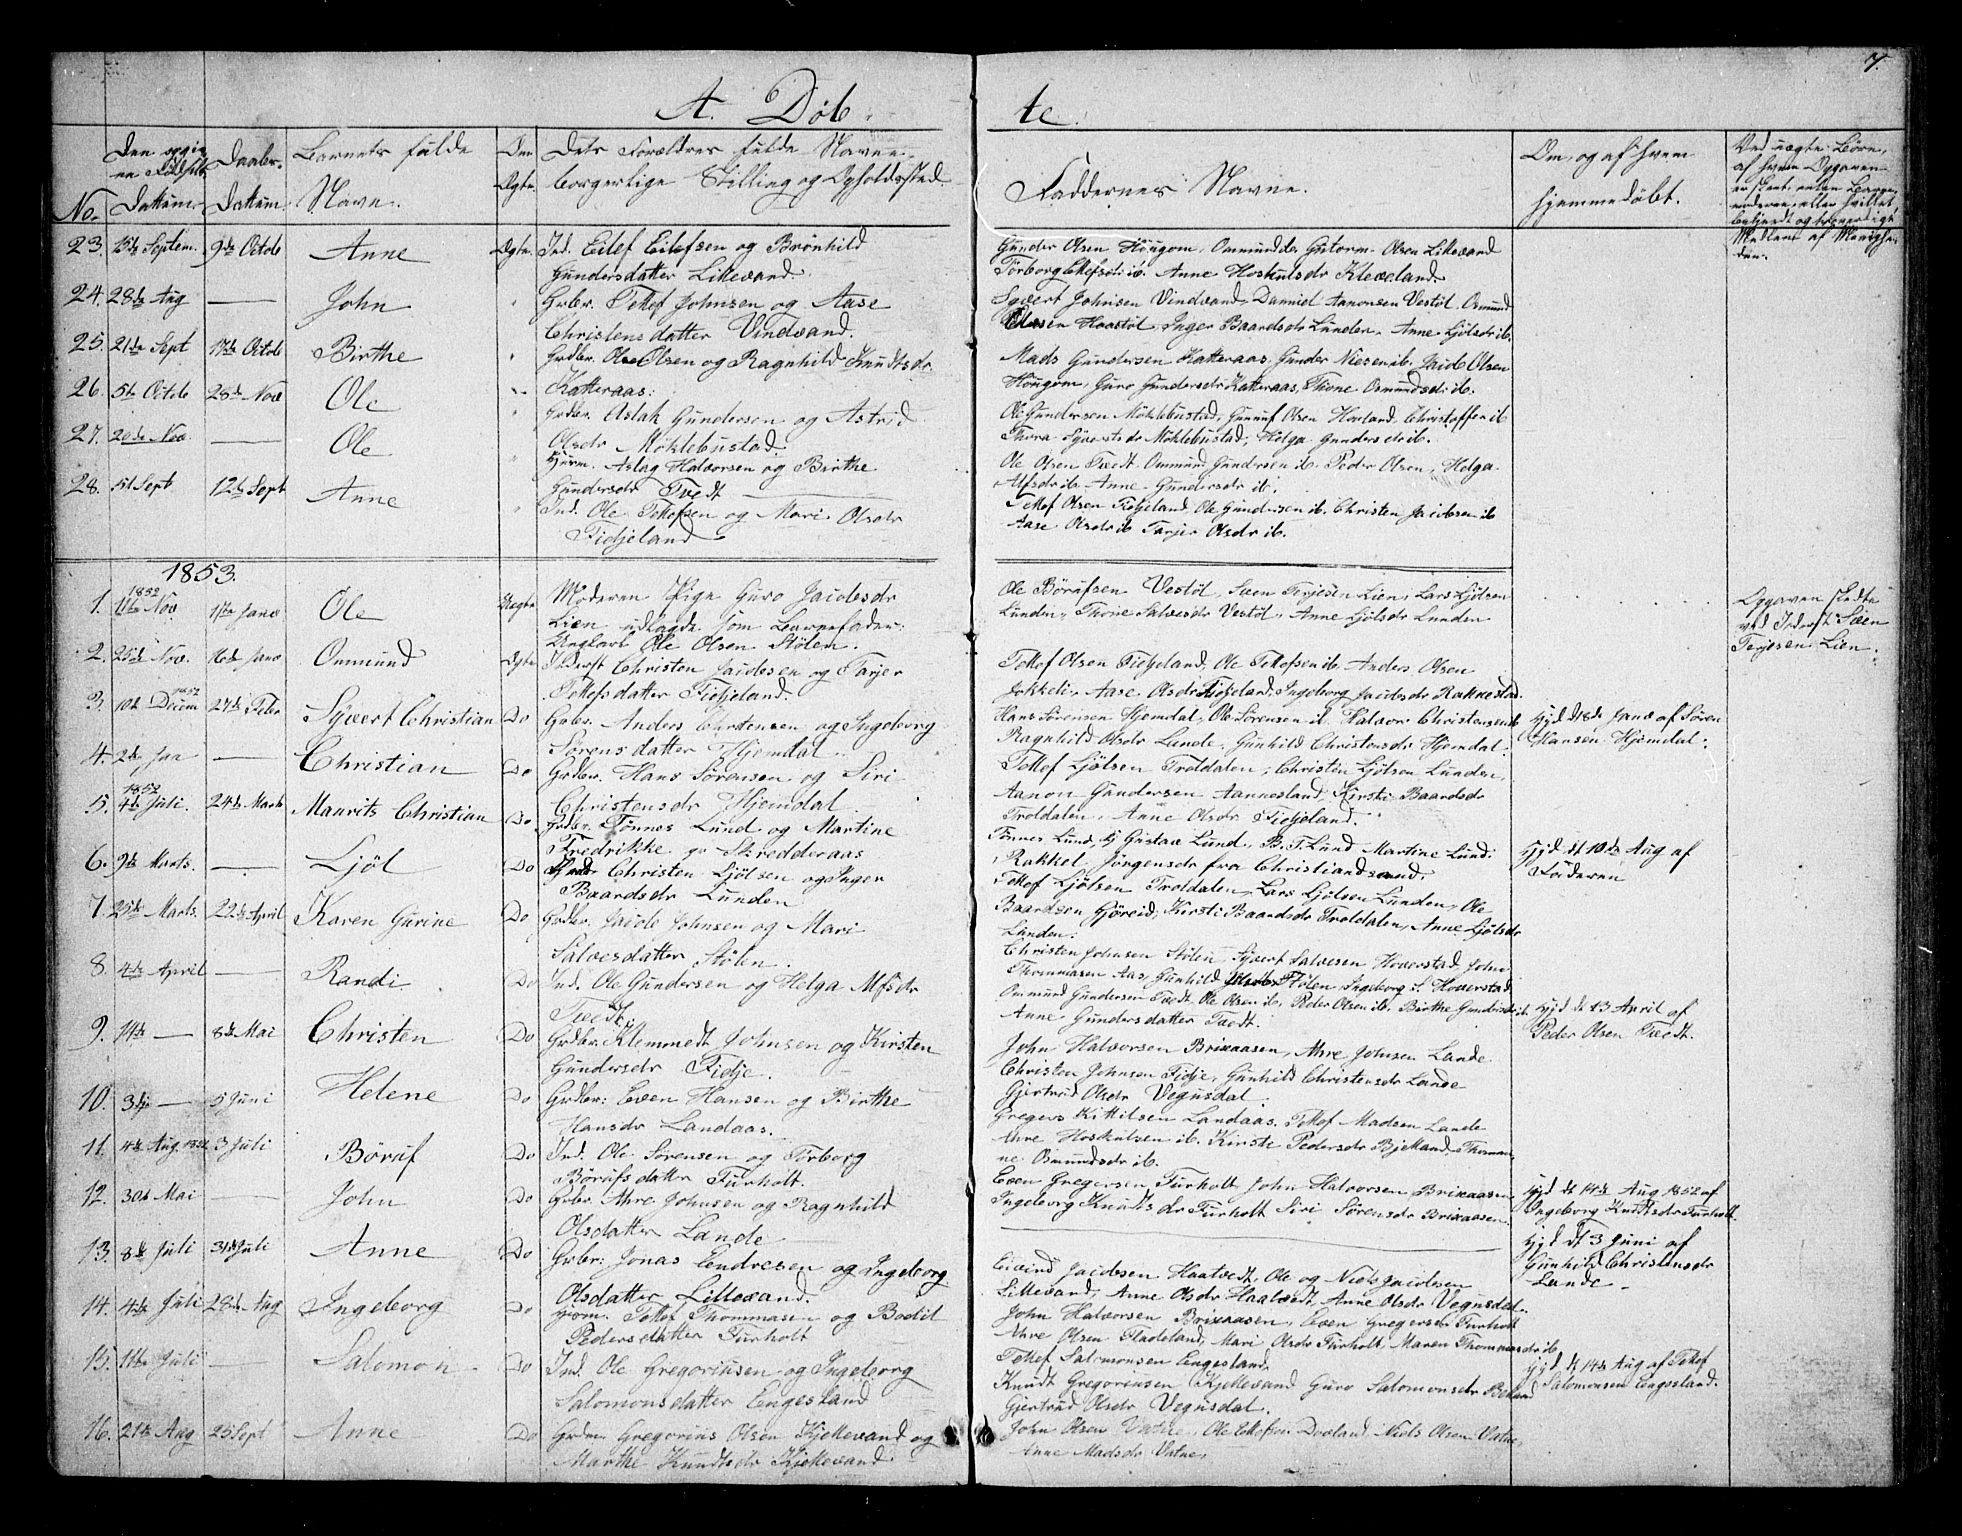 7.
A. Döbte.
No.
Den opgivne Födsels Dattum.
Daabs-Dattum.
Barnets fulde Navn.
Om Ægte
Dets Forældres fulde Navne, borgerlige Stilling og Opholdssted.
Faddernes Navne.
Om, og af hvem hjemmedöbt.
Ved uægte Börn, af hvem Opgaven er skeet, enten Barnemoderen, eller hvilket bekjendt og troværdigt Medlem af Menigheden.
23. 15de Septem. 9de Octob Anne Ægte Ind. Eilef Eilefsen og Brönhild
Gundersdatter Lillevand.
Gunder Olsen Hougom, Ommund Guttorm Olsen Lillevand
Anne Hoskulsdr Kleveland.
24. 28de Aug — John Grbr. Tellef Johnsen og Aase
Christensdatter Vindvand.
Syvert Johnsen Vindvand, Daniel Aanonsen Vestöl, Osmund
Olsen Haastöl, Inger Baardsdr Lunden, Anne Ljölsdr ib.
25. 21de Sept 17de Octob Birthe Grdbr. Ole Olsen og Ragnhild Knudtsdr
Katteraas:
Mads Gundersen Katteraas, Gunder Niesen ib. Jacob Olsen
Hougom, Guro Gundersdr Katteraas, Thone Osmundsdr ib.
26. 5te Octob 28de Nov Ole Grdbr. Aslak Gundersen og Astrid
Olsdr Möklebustad.
Ole Gundersen Möklebustad, Gunuf Olsen Hovland, Christoffer ib
Thora Syvertsdr Möklebustad, Helga Gundersdr ib.
27. 20de Nov — Ole Huusm. Aslag Halvorsen og Birthe
Gundersdr Tvedt
Ole Olsen Tvedt Ommund Gundersen ib. Peder Olsen, Helga
Alfsdr ib. Anne Gundersdr ib.
28. 5te Sept 12te Sept Anne Ind. Ole Tellefsen og Mari Olsdr
Fidjeland
Tellef Olsen Fidjeland, Ole Gundersen ib. Christen Jacobsen ib
Aase Olsdr ib Tarjer Olsdr ib.
1853.
1. 1852 11te Nov 1ste Janv Ole Uægte Moderen Pige Guro Jacobsdr
Lien udlagde som Barnefader:
Ungkarl Ole Olsen Stölen.
Ole Börufsen Vestöl, Sven Terjesen Lien, Lars Ljölsen
Lunden, Thone Salvesdr Vestöl, Anne Ljölsdr Lunden
Opgaven skedte
ved Inderst Sven
Terjesen Lien.
2. 25de Nov. 16de Janv Ommund Ægte Inderst Christen Jacobsen og Tarjer
Tellefsdatter Fidjeland.
Tellef Olsen Fidjeland, Ole Tellefsen ib. Anders Olsen
Jokkeli, Aase Olsdr Fidjeland, Ingeborg Jacobsdr Rakkestad.
3. 10de Decem 1852 27de Febr Syvert Christian Do Grbr. Anders Christensen og Ingeborg
Sörensdatter Hjemdal
Hans Sörensen Hjemdal, Ole Sörensen ib. Halvor Christensen ib
Ragnhild Olsdr Lande, Gunhild Christensdr Hjemdal
Hjd d 18de Janv af Sören
Hansen Hjemdal.
4. 2de Jan — Christian Do Grdbr. Hans Sörensen og Siri
Christensdr Hjemdal
Tellef Ljölsen Troldalen, Christen Ljölsen Lunden,
Aanon Gundersen Aannesland, Kirsti Baardsdr
Troldalen, Anne Olsdr Fidjeland.
5. 1852 4de Juli. 24de Marts Maurits Christian Do Grdbr. Tönnes Lund og Martine
Fredrikke Skredderaas
Tönnes Lund, Gustav Lund, B. T. Lund Martine Lund
Rakkel Jörgensdr fra Christiandsand.
Hjd dt 10de Aug af
Faderen
6. 9de Marts. — Ljöl Do Christen Ljölsen og Inger
Baardsdr Lunden
Tellef Ljölsen Troldalen, Lars Ljölsen Lunden, Ole
Baardsen Gjöreid, Kirsti Baardsdr Troldalen, Anne Ljölsdr
Lunden.
7. 25de Marts. 22de April Karen Gurine Do Grdbr. Jacob Johnsen og Mari
Salvesdatter Stölen.
Christen Johnsen Stölen, Syvert Salvesen Hoverstad, John
Thommasen Aas, Gunhild Stölen, Ingeborg S. Hoverstad
8. 4de April — Randi Do Ind. Ole Gundersen og Helga Alfsdr
Tvedt.
Ommund Gundersen Tvedt, Ole Olsen ib. Peder Olsen ib. Birthe Gundersdr ib.
Anne Gundersdatter Tvedt.
Hjd dt 13 April af
Peder Olsen Tvedt.
9. 14de — 8de Mai Christen Do Grdbr. Klemmedt Johnsen og Kirsten
Gundersdr Fidje.
John Halvorsen Brixaasen, Ahre Johnsen Lande
Christen Johnsen Fidje, Gunhild Christensdr Lande
Gjertrud Olsdr Vegusdal.
10. 3de — 5 Juni Helene Do Grdbr: Even Hansen og Birthe
Hansdr Landaas.
Gregers Kittilsen Landaas, Tellef Madsen Lande
Ahre Hoskulsen ib. Kirsti Pedersdr Bjelland, Thomm
ne Osmundsdr ib.
11. 4de Aug 1852 3 Juli Böruf Do Ind. Ole Sörensen og Torborg
Börufsdatter Furholt.
Even Gregersen Furholt, John Halvorsen Brixaasen,
Ingeborg Knudtsdr Furholt Siri Sörensdr Brixaasen.
Hjd dt 14de Aug 1852 af
Ingeborg Knudtsdr Furholt.
12. 30de Mai — John Do Grbr. Ahre Johnsen og Ragnhild
Olsdatter Lande
Hjd dt 3 Juni af
Gunhild Christensdr
Lande.
13. 8de Juli 31de Juli Anne Do Grbr: Jonas Endresen og Ingeborg
Olsdatter Lillevand.
Eivind Jacobsen Haatvedt, Ole og Niels Jacobsen
Lillevand, Anne Olsdr Haatvedt, Anne Olsdr Vegusdal.
14. 4de Juli 28de Aug Ingeborg Do Huusm. Tellef Thommasen og Bodil
Pedersdatter Furholt
John Halvorsen Brixaasen, Even Gregersen Furholt
Ahre Olsen Fladeland, Mari Olsdr Furholt, Maren Thommasdr ib
15. 11te Juli — Salomon Do Ind. Ole Gregoriusen og Ingeborg
Salomonsdatter Engesland
Tellef Salomonsen Engesland.
Knudt Gregoriusen Kjellevand Guro Salomonsdr
Gjertrud Olsdr Vegusdal.
Hjd dt 14de Aug af Tellef
Salomonsen Engesland.
16. 21de Aug 25 Sept Anne Do Grdm. Gregorius Olsen Kjellevand og
Marthe Knudtsdr Kjellevand.
John Olsen Vatne, Ole Ellefsen Dovland, Niels Olsen Vatne,
Anne Madsdr Vatne,